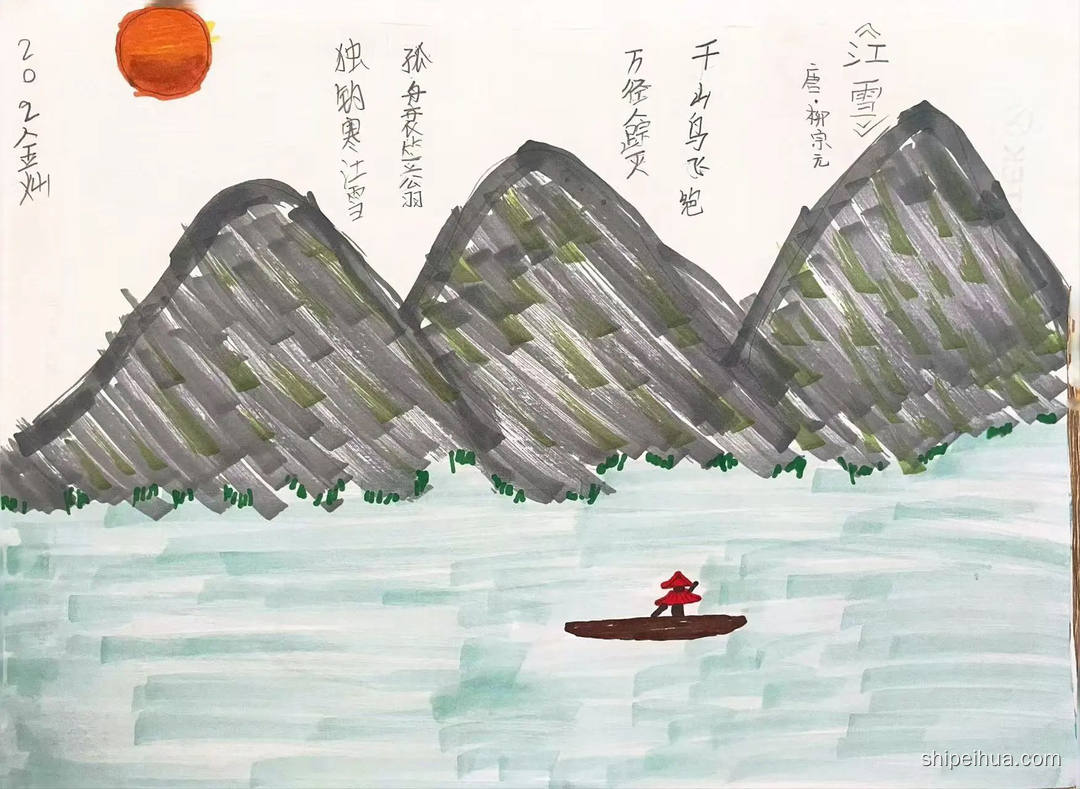 《江雪》
唐·柳宗元
千山鸟飞绝
万径人踪灭
孤舟蓑笠翁
独钓寒江雪
202金灿
shipeihua.com